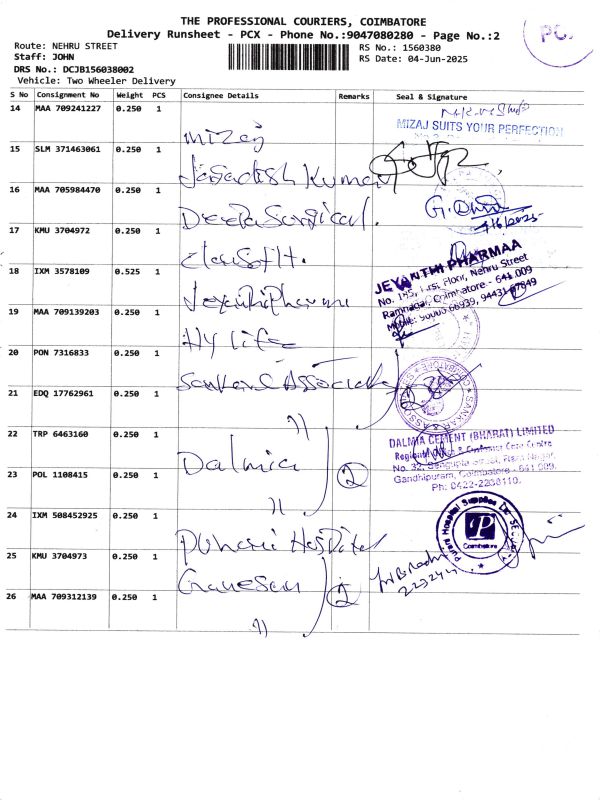 THE PROFESSIONAL COURIERS, COIMBATORE
Delivery Runsheet - PCX - Phone No.:9047080280 - Page No.:2
Route: NEHRU STREET
RS No.: 1560380
Staff: JOHN
RS Date: 04-Jun-2025
DRS No.: DCJB156038002
Vehicle: Two Wheeler Delivery
S No Consignment No Weight PCS Consignee Details Remarks Seal & Signature
14 MAA 709241227 0.250 1 Mizaj
MIZAJ SUITS YOUR PERFECTION
15 SLM 371463061 0.250 1 Jagadish Kumar
16 MAA 705984470 0.250 1 Deepa Surgical.
17 KMU 3704972 0.250 1
18 IXM 3578109 0.525 1 Jeyanthi Pharma
JEYANTHI PHARMAA
No. 195, First Floor, Nehru Street
Ramnagar, Coimbatore - 641 009
19 MAA 709139203 0.250 1 Hy life
20 PON 7316833 0.250 1 Sankar & Associates
21 EDQ 17762961 0.250 1 〃
22 TRP 6463160 0.250 1 Dalmia
DALMIA CEMENT (BHARAT) LIMITED
Gandhipuram, Coimbatore - 641 009.
Ph: 0422-2230110.
23 POL 1108415 0.250 1 〃 2
24 IXM 508452925 0.250 1
Coimbatore
25 KMU 3704973 0.250 1 Ganesan 2
26 MAA 709312139 0.250 1 〃